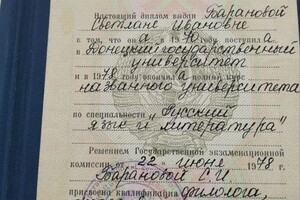 Настоящий диплом выдан Барановой
Светлане Ивановне
в том, что он а в 19 году поступил а
в Донецкий государственный
университет
и в 1978 году окончил а полный курс
названного университета
по специальности „Русский
язык и литература"
Решением Государственной экзаменационной
комиссии от 22 июня 1978 г.
Барановой С.И.
присвоена квалификация филолога,